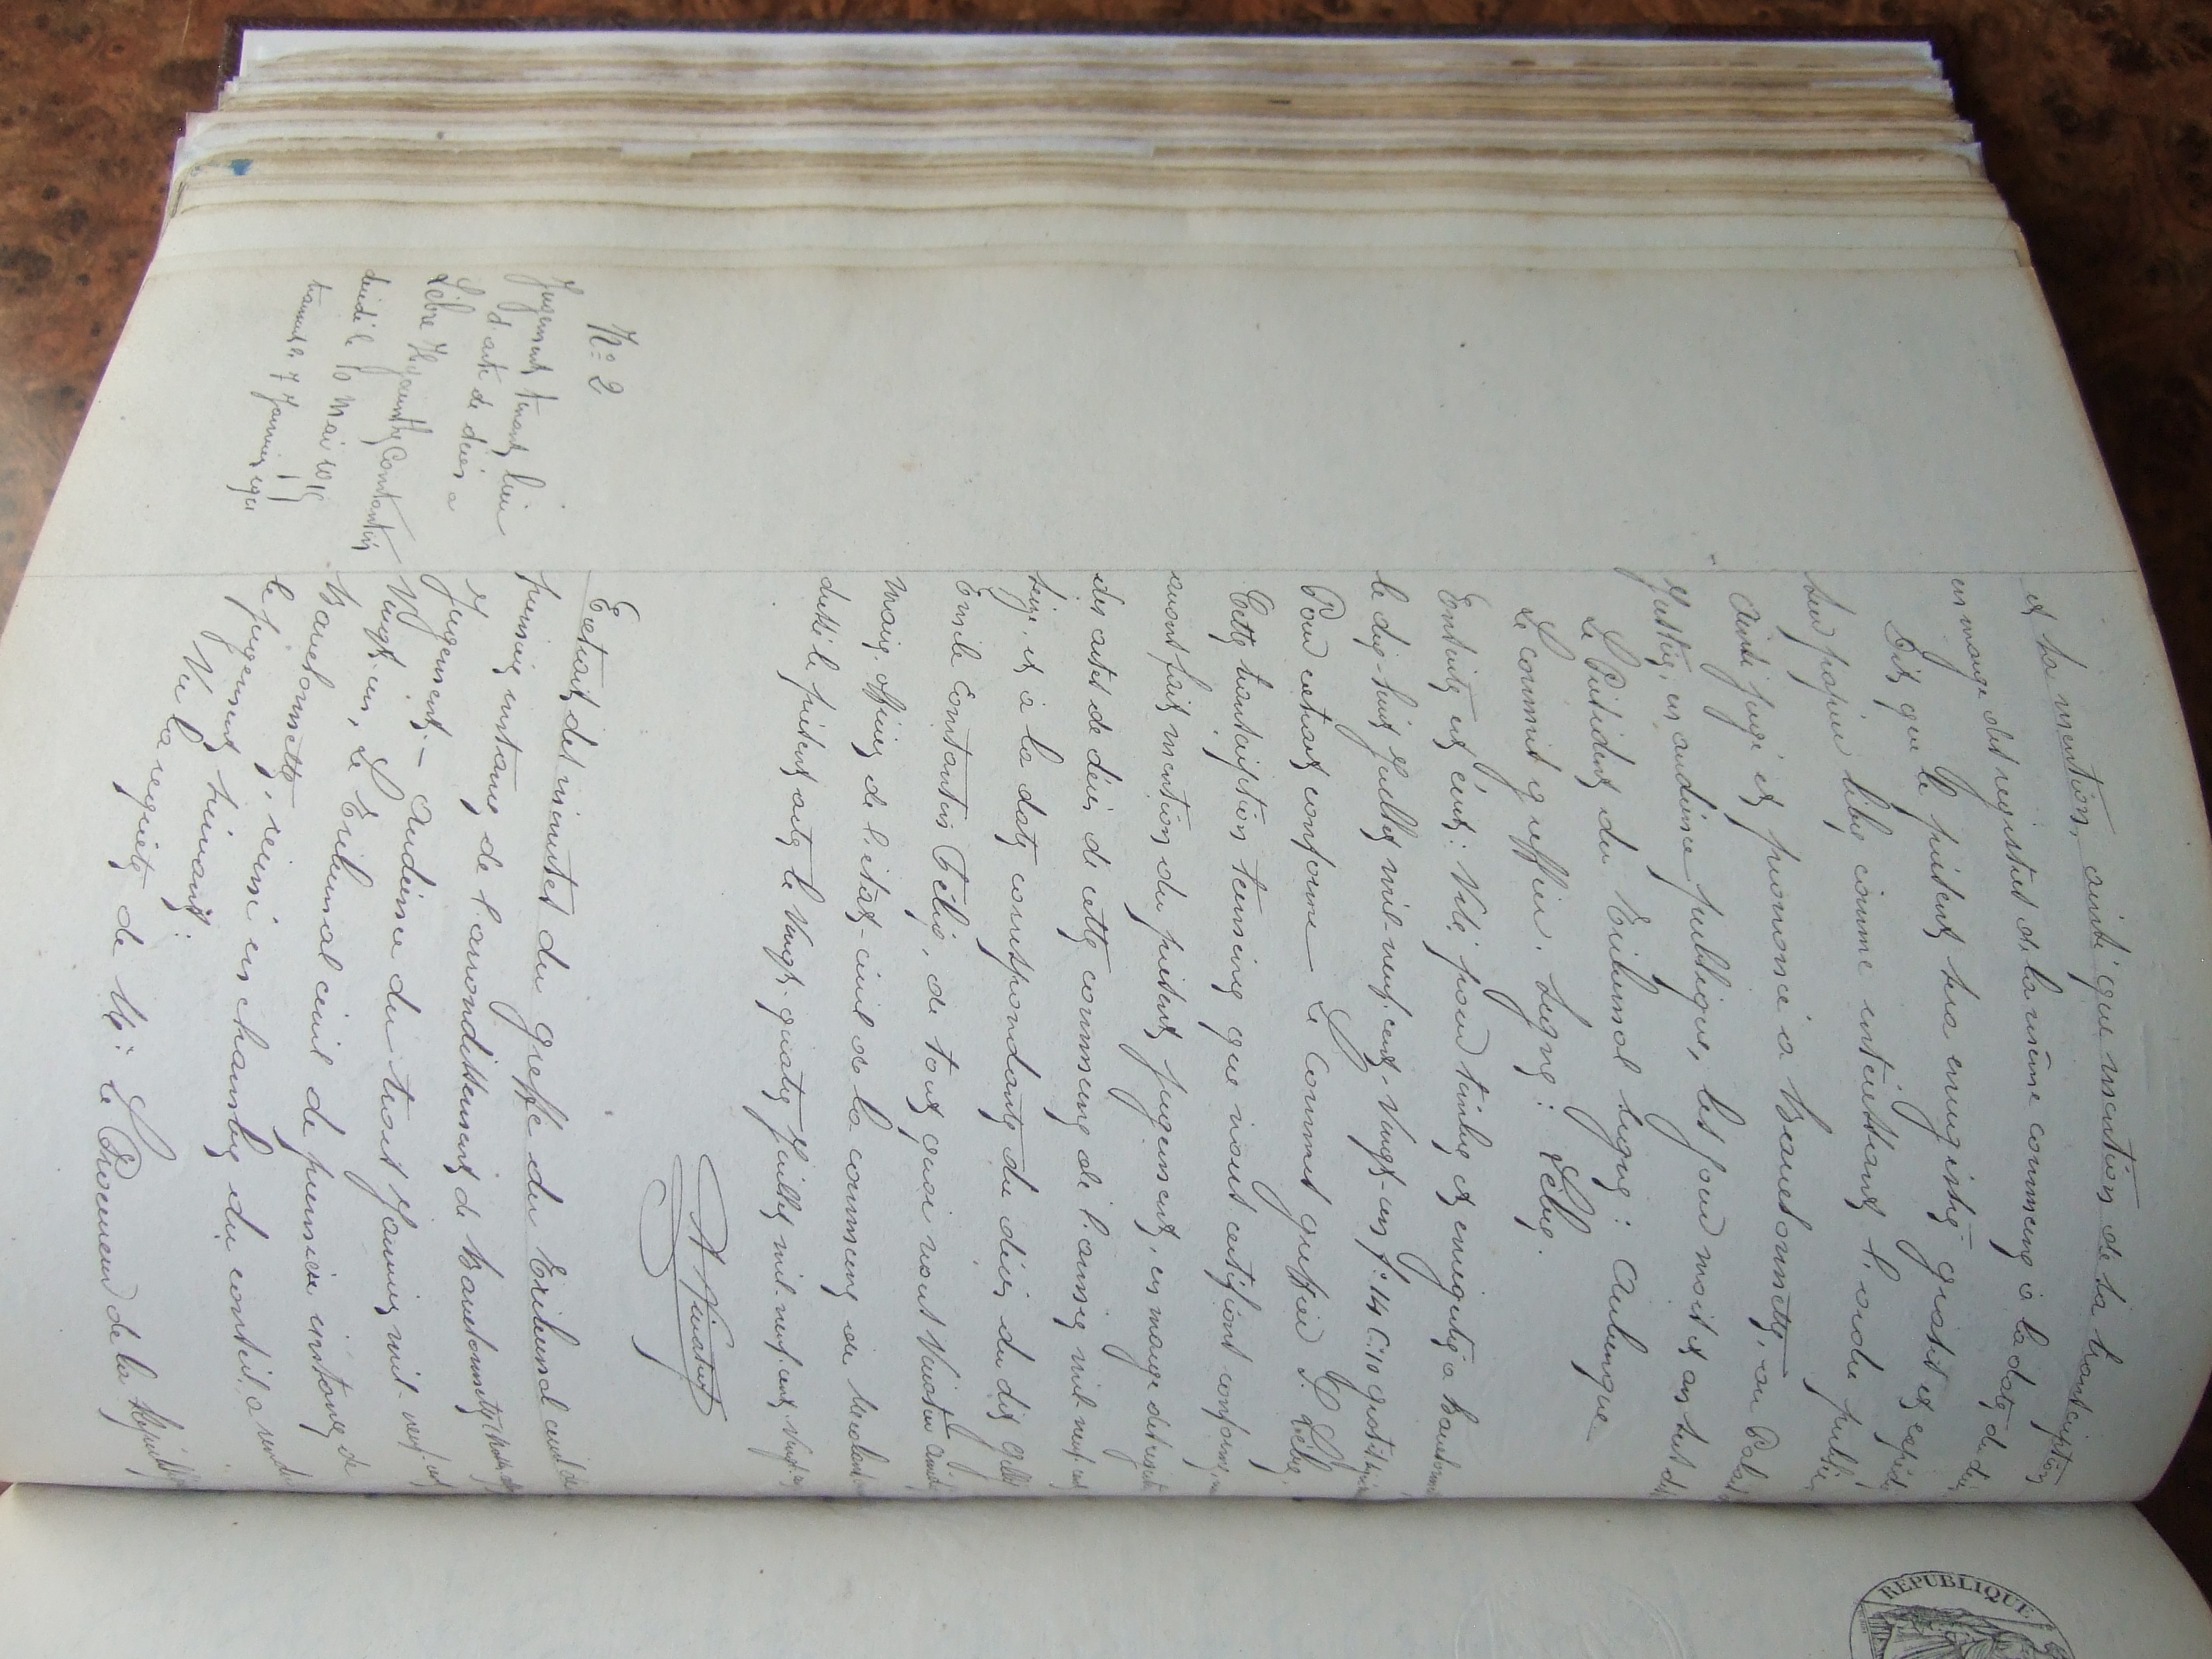 et sa mention, ainsi que mention de sa transcription
en marge des registres de la même commune à la date du
Dit que le présent sera enregistré gratis et
sur papier libre comme intéressant l'ordre public
Ainsi jugé et prononcé à Barcelonnette, au
Justice, en audience publique, les jour mois et an sus
Le Président du Tribunal signé: Aubengue
Le commis greffier. Signé:
Ensuite est écrit: Visé pour timbre et enregistré à
le dix-huit Juillet mil-neuf-cent-vingt-un f: 14 C: 10 gratis
Pour extrait conforme Le Commis greffier
Cette transcription terminée que nous certifions conforme,
avons fait mention du présent jugement, en marge
des actes de décès de cette commune de l'année mil neuf cent
seize et à la date correspondante du décès du dit
Emile Constantin Félix, de tout quoi nous
Maire officier de l'état-civil de la commune de
dressé le présent acte le Vingt-quatre Juillet mil-neuf-cent
N° 2
Jugement tenant lieu
d'acte de décès à
Lèbre Hyacinthe Constantin
décédé le 10 Mai
transcrit le 7 Janvier
Extrait des minutes du greffe du Tribunal civil de
première instance de l'arrondissement de Barcelonnette
Jugement - Audience du trois Janvier mil-neuf-cent
Vingt-un, Le Tribunal civil de première instance de
Barcelonnette, réuni en chambre du conseil, a rendu
le jugement suivant:
Vu la requête de Mr le Procureur de la
REPUBLIQUE